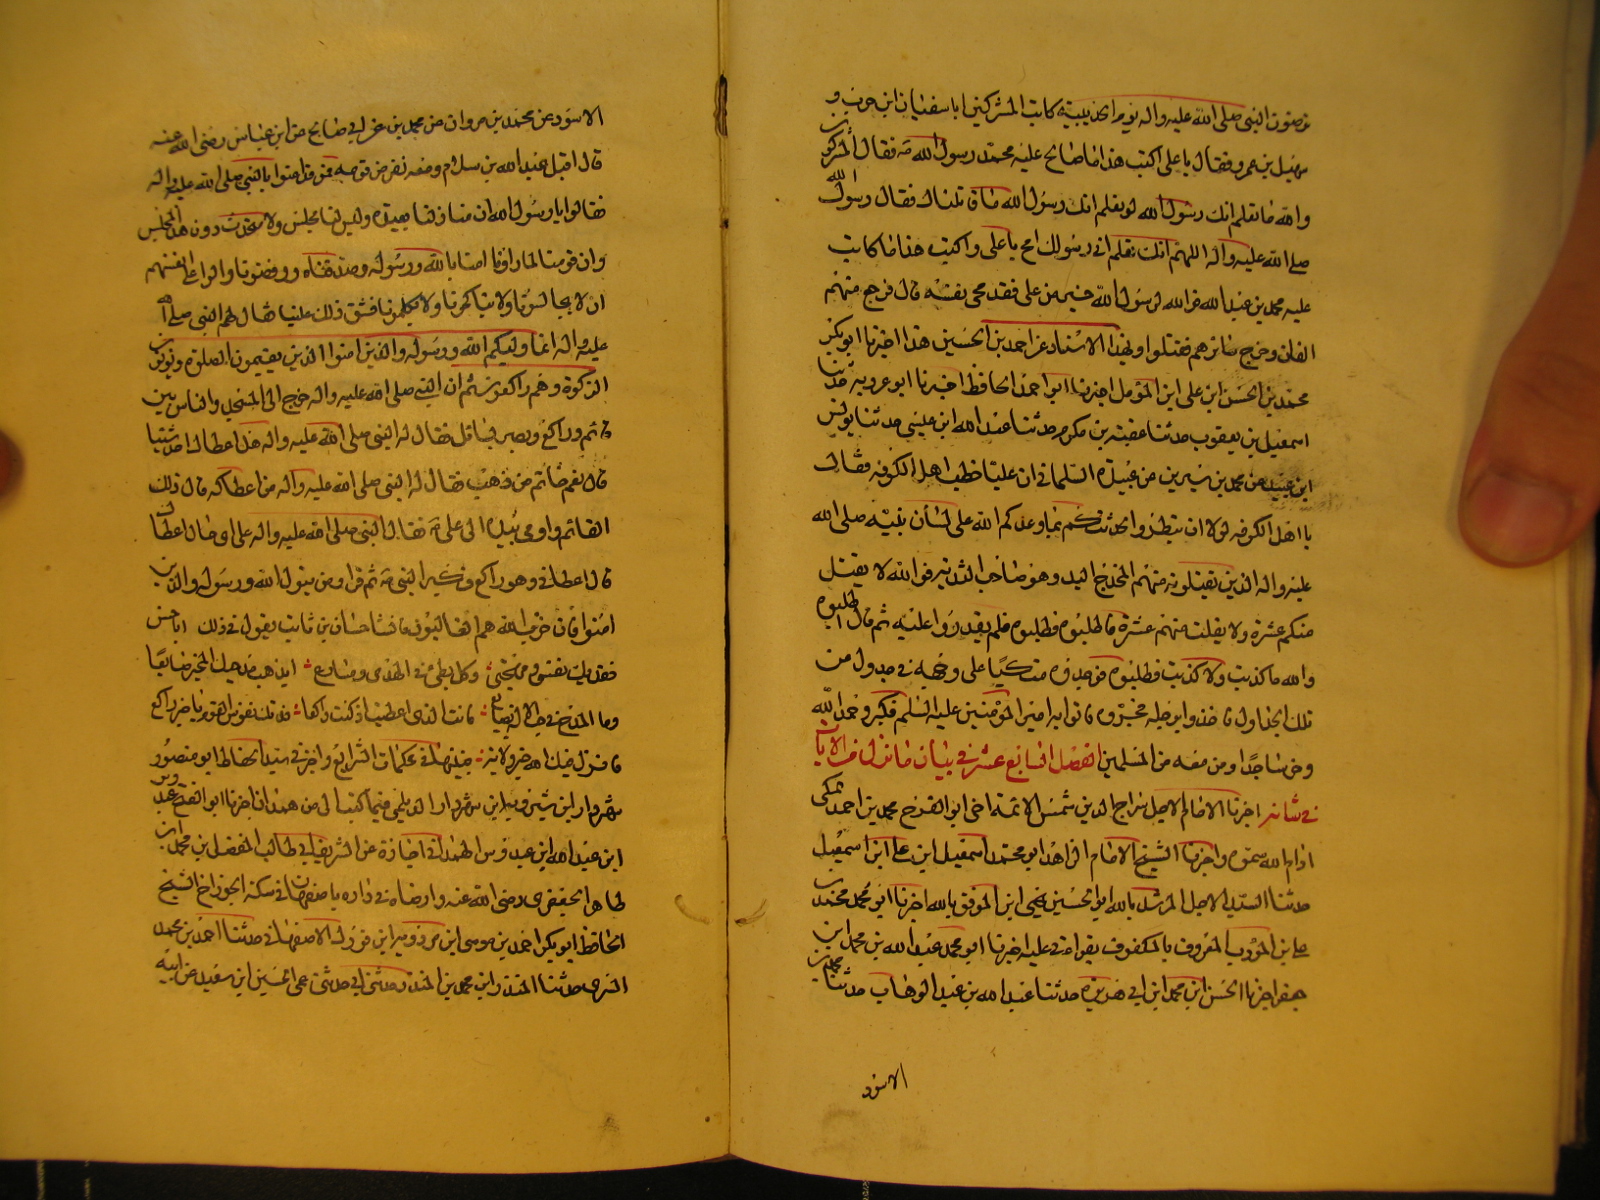 عرضتون النبي صلى الله عليه واله يوم الحديبية كاتب المشركين ابا سفيان ابن حرب و
سهيل بن عمرو فقال يا علي اكتب هذا ما صالح عليه محمد رسول الله فقال المشركون
والله ما نعلم انك رسول الله لو نعلم انك رسول الله ما قاتلناك فقال رسول الله
صلى الله عليه واله اللهم انك تعلم اني رسولك امح يا علي واكتب هذا ما كاتب
عليه محمد بن عبد الله فوالله لرسول الله خير من علي فقد محى نفسه قال فرجع منهم
الفان وخرج سائرهم فقتلوا وبهذا الاسناد عن احمد بن الحسين هذا اخبرنا ابو بكر
محمد بن الحسن ابن علي ابن المؤمل اخبرنا ابو احمد الحافظ اخبرنا ابو عروبة حدثنا
اسمعيل بن يعقوب حدثنا عقبة بن مكرم حدثنا عبد الله ابن عيسى حدثنا يونس
ابن عبيد عن محمد بن سيرين عن عبيدة السلماني ان عليا خطب اهل الكوفه فقال
يا اهل الكوفه لولا ان تبطروا لحدثتكم بما وعدكم الله على لسان نبيه صلى الله
عليه واله الذين تقتلونه منهم المخدج اليد وهو صاحب الثدية فوالله لا يقتل
منكم عشرة ولا يفلت منهم عشرة فاطلبوه فطلبوه فلم يقدروا عليه ثم قال اطلبوه
والله ما كذبت ولا كذبت فطلبوه فوجدوه منكبا على وجهه في جدول من
تلك الجداول فاخذوا برجله فجروه فاتوا به امير المؤمنين عليه السلم فكبر وحمد الله
وخر ساجدا ومن معه من المسلمين الفصل السابع عشر في بيان ما نزل من الايات
في شانه اخبرنا الامام الاجل سراج الدين شمس الائمة اخي ابو الفرج محمد بن احمد المكي
ادام الله سموه واخبرنا الشيخ الامام الزاهد ابو محمد اسمعيل ابن علي ابن اسمعيل
حدثنا السيد الاجل المرشد بالله ابو الحسين يحيى ابن الموفق بالله اخبرنا ابو محمد محمد بن
علي بن المؤدب المعروف بالمكفوف بقراءتي عليه اخبرنا ابو محمد عبد الله بن محمد ابن
جعفر اخبرنا الحسن ابن محمد ابن ابي هريرة حدثنا عبد الله بن عبد الوهاب حدثنا محمد بن
الاسود
الاسود عن محمد بن مروان عن محمد بن عن ابي صالح عن ابن عباس رضى الله عنه
قال اقبل عبد الله بن سلام ومعه نفر من قومه ممن قد امنوا بالنبي صلى الله عليه واله
فقالوا يا رسول الله ان منازلنا بعيدة وليس لنا مجلس ولا متحدث دون هذا المجلس
وان قومنا لما راونا امنا بالله ورسوله وصدقناه ورفضونا والوا على انفسهم
ان لا يجالسونا ولا يناكحونا ولا يكلمونا فشق ذلك علينا فقال لهم النبي صلى الله
عليه واله انما وليكم الله ورسوله والذين امنوا الذين يقيمون الصلوة ويؤتون
الزكوة وهم راكعون ثم ان النبي صلى الله عليه واله خرج الى المسجد والناس بين
قائم وراكع وبصر بسائل فقال له النبي صلى الله عليه واله هل اعطاك احد شيئا
قال نعم خاتم من ذهب فقال له النبي صلى الله عليه واله من اعطاكه قال ذلك
القائم واومى بيده الى علي فقال النبي صلى الله عليه واله على اي حال اعطاك
قال اعطاني وهو راكع فكبر النبي ثم قرا ومن يتول الله ورسوله والذين
امنوا فان حزب الله هم الغالبون فانشا حسان بن ثابت يقول في ذلك ابا حسن
تفديك نفسي ومهجتي وكل بطيء في الهدى ومسارع ايذهب مدحيك المحبر ضايعا
وما المدح في جنب الاله بضايع فانت الذي اعطيت اذ كنت راكعا فدتك نفوس القوم يا خير راكع
فانزل فيك الله خير ولاية فبينها في محكمات الشرايع واخبرني سيد الحفاظ ابو منصور
شهردار ابن شيرويه ابن شهردار الديلمي فيما كتب الي من همدان اخبرنا ابو الفتح عبدوس
ابن عبد الله ابن عبدوس الهمداني اجازة عن الشريف ابي طالب المفضل بن محمد ابن
طاهر الجعفري رضى الله عنه وارضاه في داره باصفهان في سكة الخوز اخ الشيخ
الحافظ ابو بكر احمد بن موسى ابن مردويه ابن فورك الاصفهاني حدثنا احمد بن محمد
السري حدثنا المنذر ابن محمد بن المنذر حدثني ابي حدثني عمي الحسين ابن سعيد عن ابيه